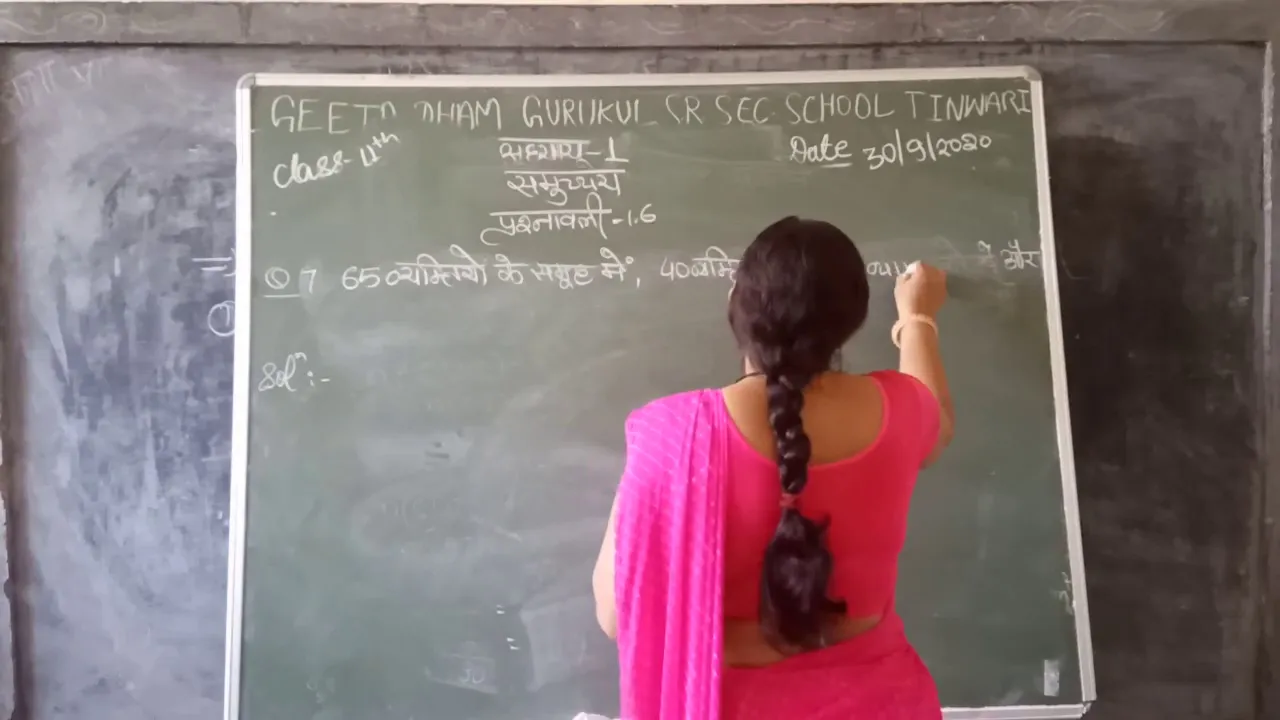 GEETA DHAM GURUKUL SR SEC. SCHOOL TINWARI
Class- 11th
Date 30/9/2020
अध्याय-1
समुच्चय
प्रश्नावली-1.6
Q 7 65 व्यक्तियों के समूह में, 40 और
Solⁿ :-